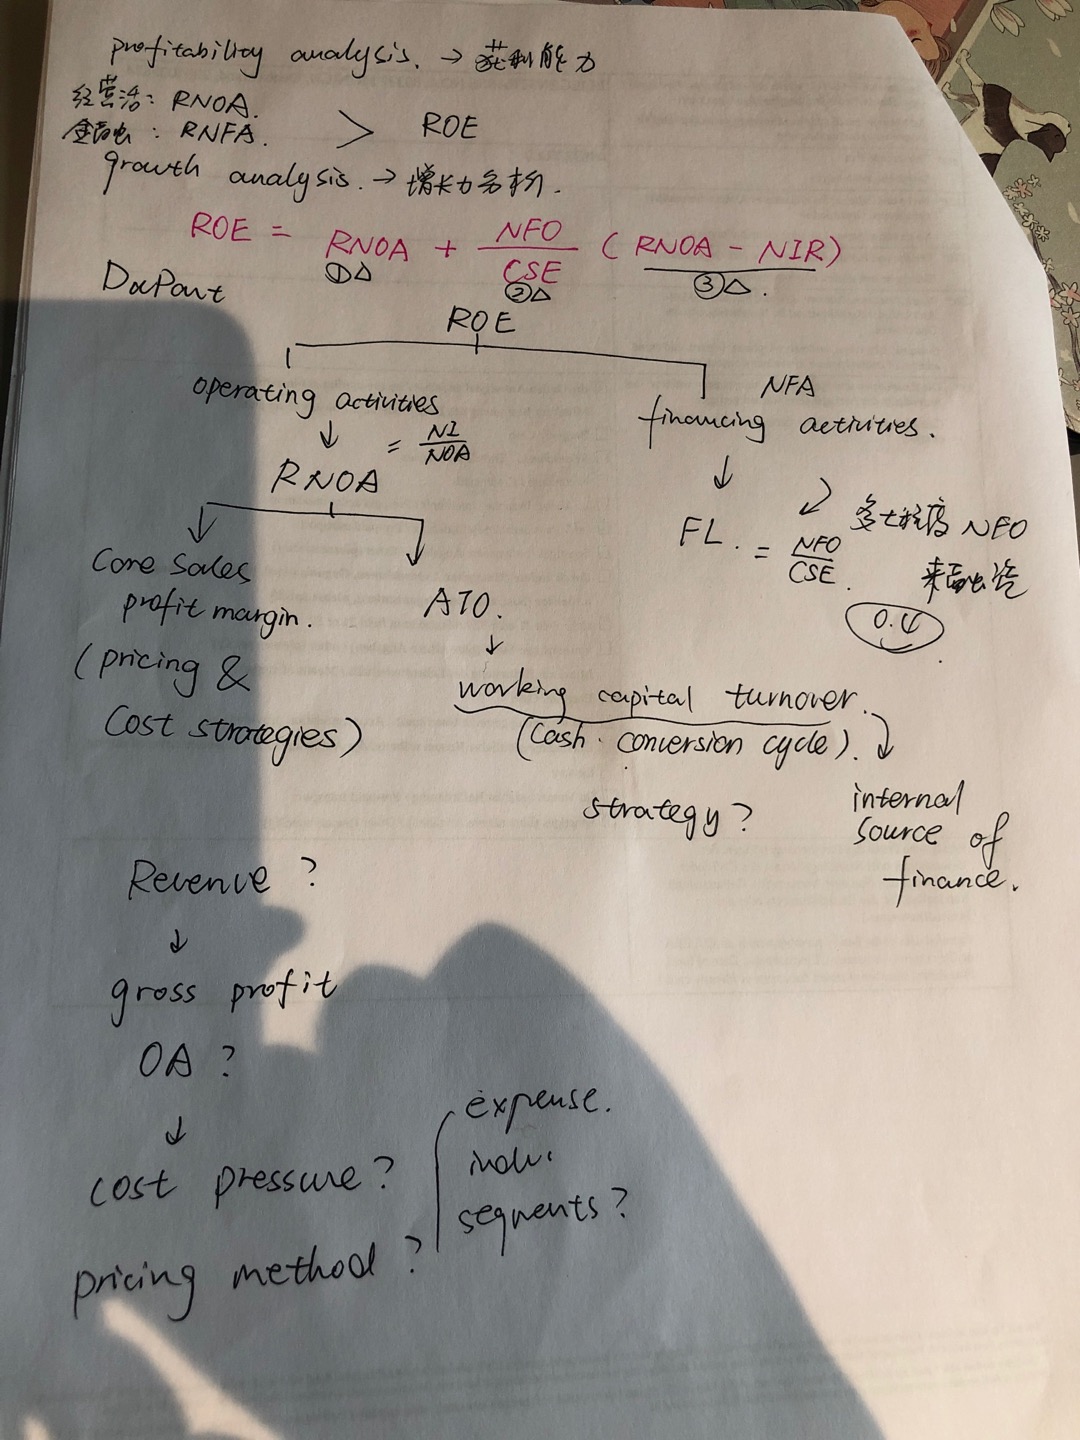 profitability analysis. → 获利能力
经营活: RNOA.
金融: RNFA. > ROE
growth analysis. → 增长力分析.
ROE = RNOA + NFO/CSE (RNOA - NIR)
①△ ②△ ③△.
DuPont
ROE
operating activities
NFA
financing activities.
↓ = NI/NOA
RNOA
↓
FL. = NFO/CSE.
多大程度 NFO
来融资
0.4
Core Sales
profit margin.
(pricing &
Cost strategies)
ATO.
↓
working capital turnover.
(Cash conversion cycle).
strategy?
internal
source of
finance.
Revenue?
↓
gross profit
OA?
↓
cost pressure?
pricing method?
expense.
segments?